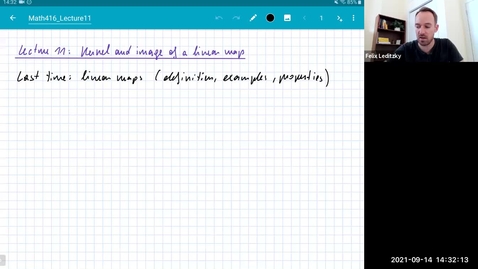 14:32
85%
Math416_Lecture11
1
Lecture 11: Kernel and image of a linear map
Last time: linear maps (definition, examples, properties)
Felix Leditzky
2021-09-14 14:32:13